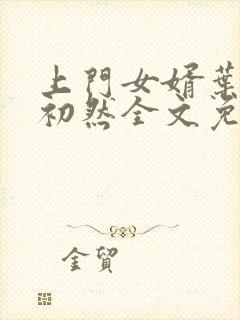 上門女婿葉
初然全文免
金貿